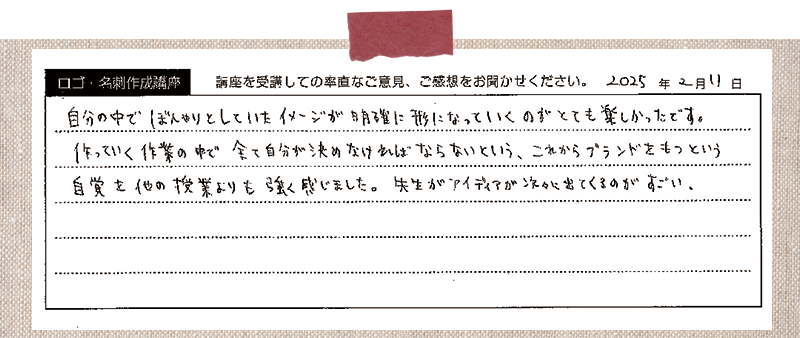 ロゴ・名刺作成講座 講座を受講しての率直なご意見、ご感想をお聞かせください。 2025 年 2月 11 日
自分の中で ぼんやりとしていた イメージが 明確に 形になっていく のが とても 楽しかったです。
作っていく 作業の 中で 全て 自分が 決めなければ ならないという、これから ブランドをもつという
自覚を 他の 授業よりも 強く 感じました。 先生が アイディアが 次々に 出てくるのが すごい。